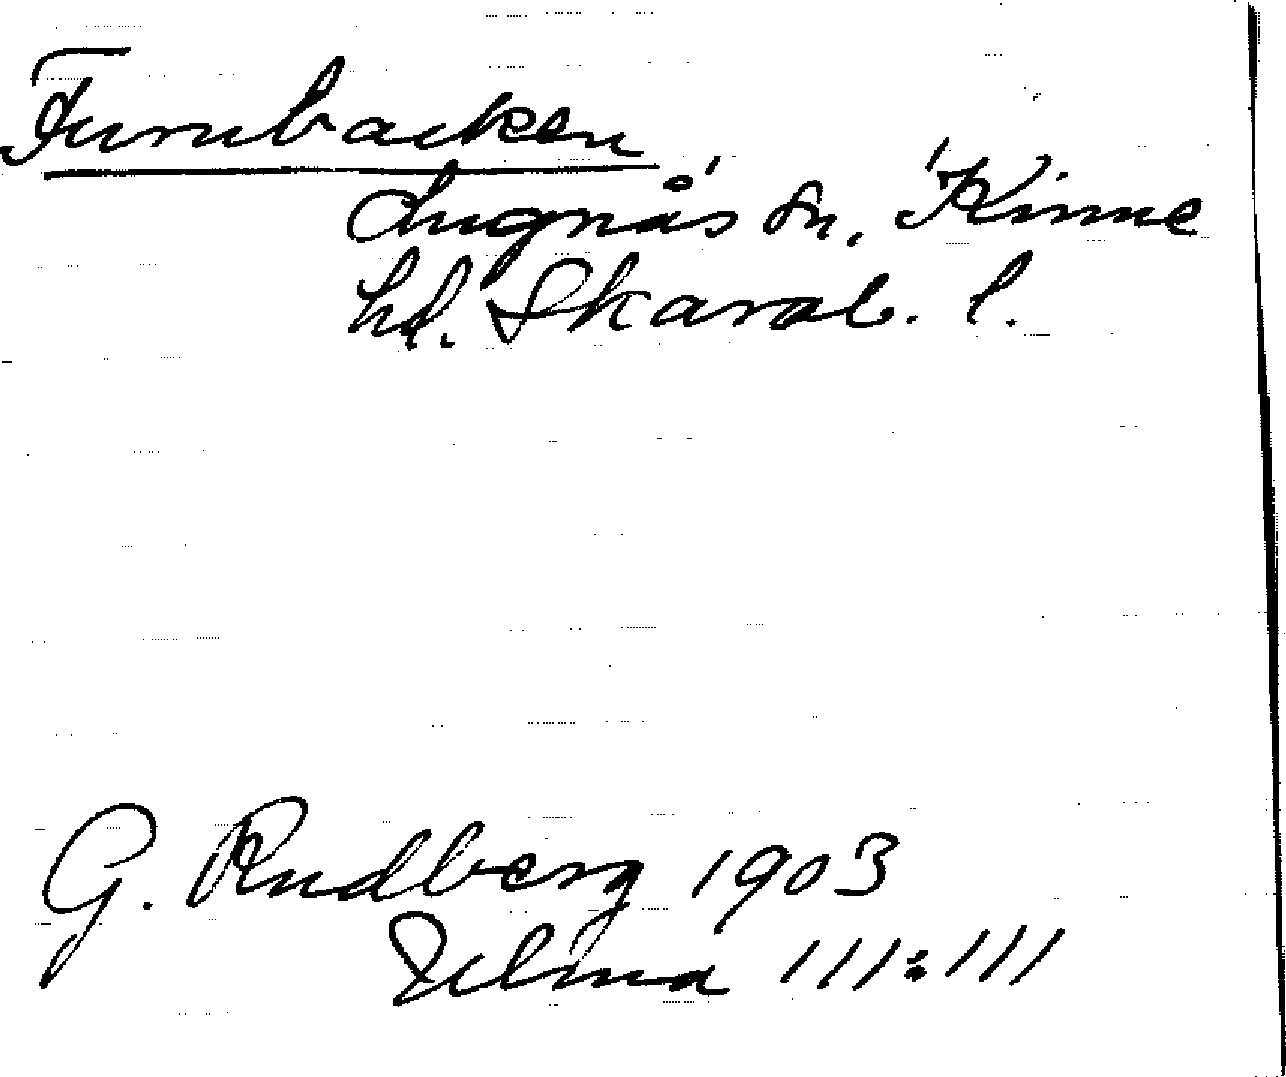 Furubacken
Lugnås sn, Kinne
hd. Skarab. l.
G. Rudberg 1903
Ulma 111:111